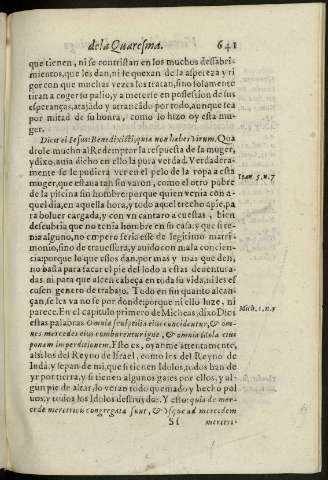 de la Quaresma. 641
que tienen, ni se contristan en los muchos dessabri-
mientos, que les dan, ni se quexan de la aspereza y ri
gor con que muchas vezes los tratan, sino solamente
tiran a coger su palio, y a meterse en possession de sus
esperanças, atajado y atrancado por todo, aunque sea
por mitad de su honra, como lo hizo oy esta mu-
ger.
Dicit ei Iesus: Benedixisti, quia non habes virum. Qua
drole mucho al Redemptor la respuesta de la muger,
y dixo, auia dicho en ello la pura verdad. Verdadera-
mente se le pudiera ver en el pelo de la ropa a esta
muger, que estaua tan sin varon, como el otro pobre
de la piscina sin hombre: porque quien venia con a-
quel dia, en aquella hora, y todo aquel trecho a pie, pa
ra boluer cargada, y con vn cantaro a cuestas, bien
descubria que no tenia hombre en su casa: y que si te-
nia alguno, no empero seria esse de legitimo matri-
monio, sino de trauessura, y auido con mala concien-
cia: porque lo que essos dan, por mas y mas que den,
no basta para sacar el pie del lodo a estas desuentura-
das ni para que alcen cabeça en toda su vida, ni les es
cusen genero de trabajo. Todo en fin quanto alcan-
çan, se les va no se por donde: porque ni ello luze, ni
parece. En el capitulo primero de Micheas, dixo Dios
estas palabras. Omnia sculptilia eius concidentur, & om-
nes mercedes eius comburentur igne, & omnia idola eius
ponam in perditionem. Esto es, oyanme atentamente,
assi los del Reyno de Israel, como los del Reyno de
Iudá, y sepan de mi, que si tienen Idolos, todos han de
yr por tierra, y si tienen algunos gajes por ellos, y al-
gun pie de altar, lo veran todo quemado y hecho pol
uos, y todos los Idolos destruydos. Y esto: quia de mer-
cede meretricis congregata sunt, & vsque ad mercedem
Sf meretri-
Ioan. 5. n. 7
Mich. 1. n. 7